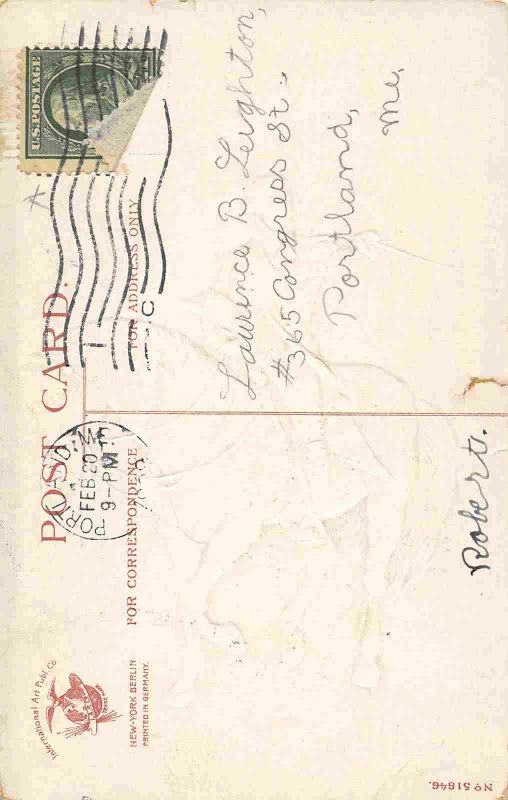 POST CARD.
International Art Publ. Co.
NEW-YORK BERLIN
PRINTED IN GERMANY.
FOR CORRESPONDENCE
FOR ADDRESS ONLY
U.S. POSTAGE
FEB 20
9-PM
C
Lawrence B. Leighton,
#365 Congress St.
Portland,
Me.
Robert.
No. 51646.